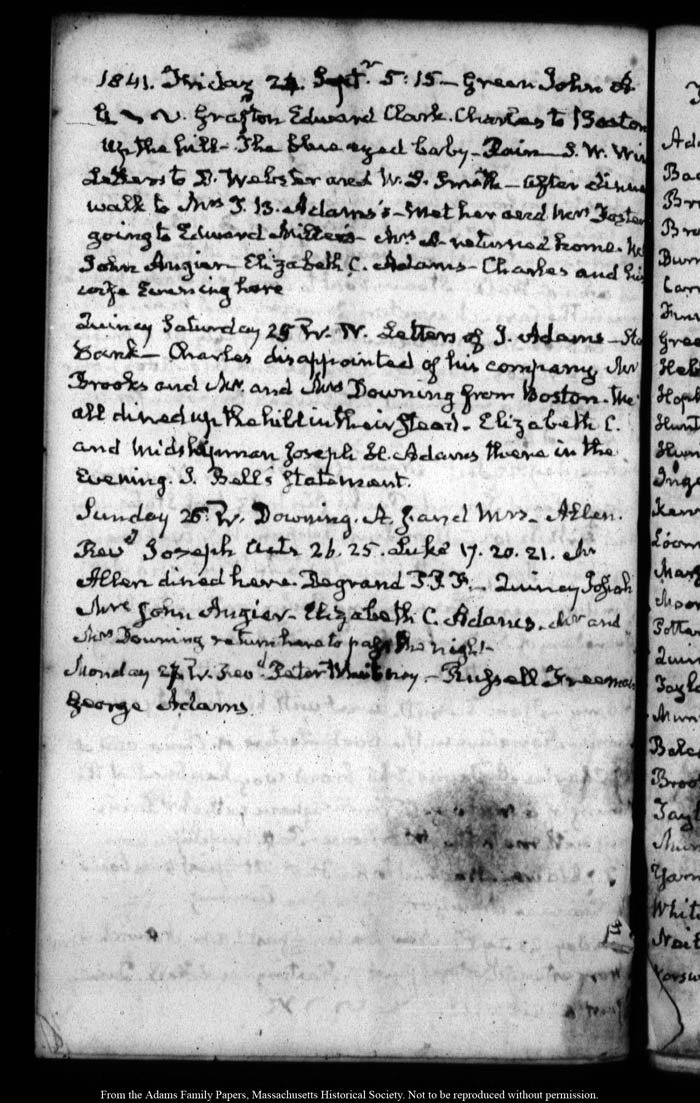 1841. Friday 24. Septr. 5:15 – Green John A
Grafton Edward Clark. Charles to Boston
Up the hill – The blue eyed baby – Rain – S. W. Wi
Letters to D. Webster and W. S. Smith – after dinne
walk to Mrs T. B. Adams's – met her and Mrs Foster
going to Edward Miller's – Mrs A. returned home.
John Angier – Elizabeth C. Adams – Charles and his
wife Evening here
Quincy Saturday 25 W. W. Letters of J. Adams –
Bank – Charles disappointed of his company, Mr
Brooks and Mr. and Mrs Downing from Boston. We
all dined up the hill in their stead – Elizabeth C.
and Midshipman Joseph H. Adams there in the
Evening. S. Bell's statement.
Sunday 26. W. Downing. A. J. and Mrs – Allen.
Revd Joseph Acts 26. 25. Luke 17. 20. 21. Mr
Allen dined here. Degrand P.P.F. – Quincy Josiah
Mrs John Angier – Elizabeth C. Adams. Mr and
Mrs Downing return here to pass the night –
Monday 27 W. Revd Peter Whitney – Russell Freeman
George Adams
Ada
Bac
Br
Bro
Burn
Carr
Gree
Hop
Hunt
Hum
Inge
Ken
Loom
Mar
Moor
Potter
Quin
Tayl
Mun
Bela
Broo
Tayl
Mun
Yarn
White
From the Adams Family Papers, Massachusetts Historical Society. Not to be reproduced without permission.